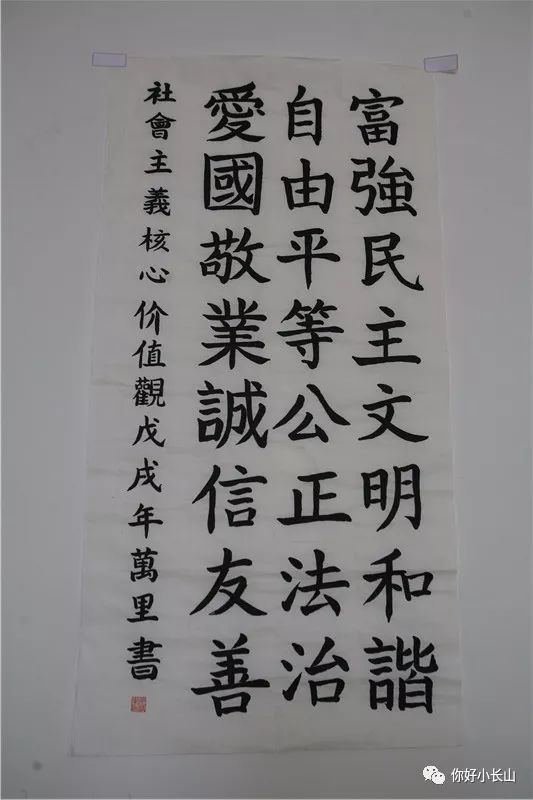 富強民主文明和諧
自由平等公正法治
愛國敬業誠信友善
社會主義核心价值觀戊戌年萬里書
你好小长山